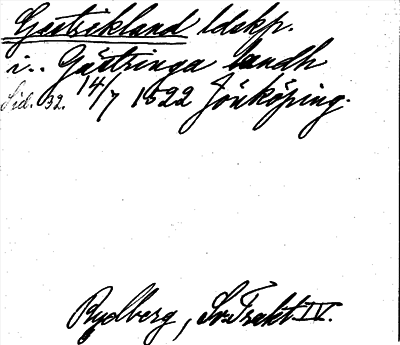 Gästrikland ldskp.
i.. Gästringa landh
Sid. 32. 14/7 1522 Jönköping.
Rydberg, Sv. Trakt. IV.